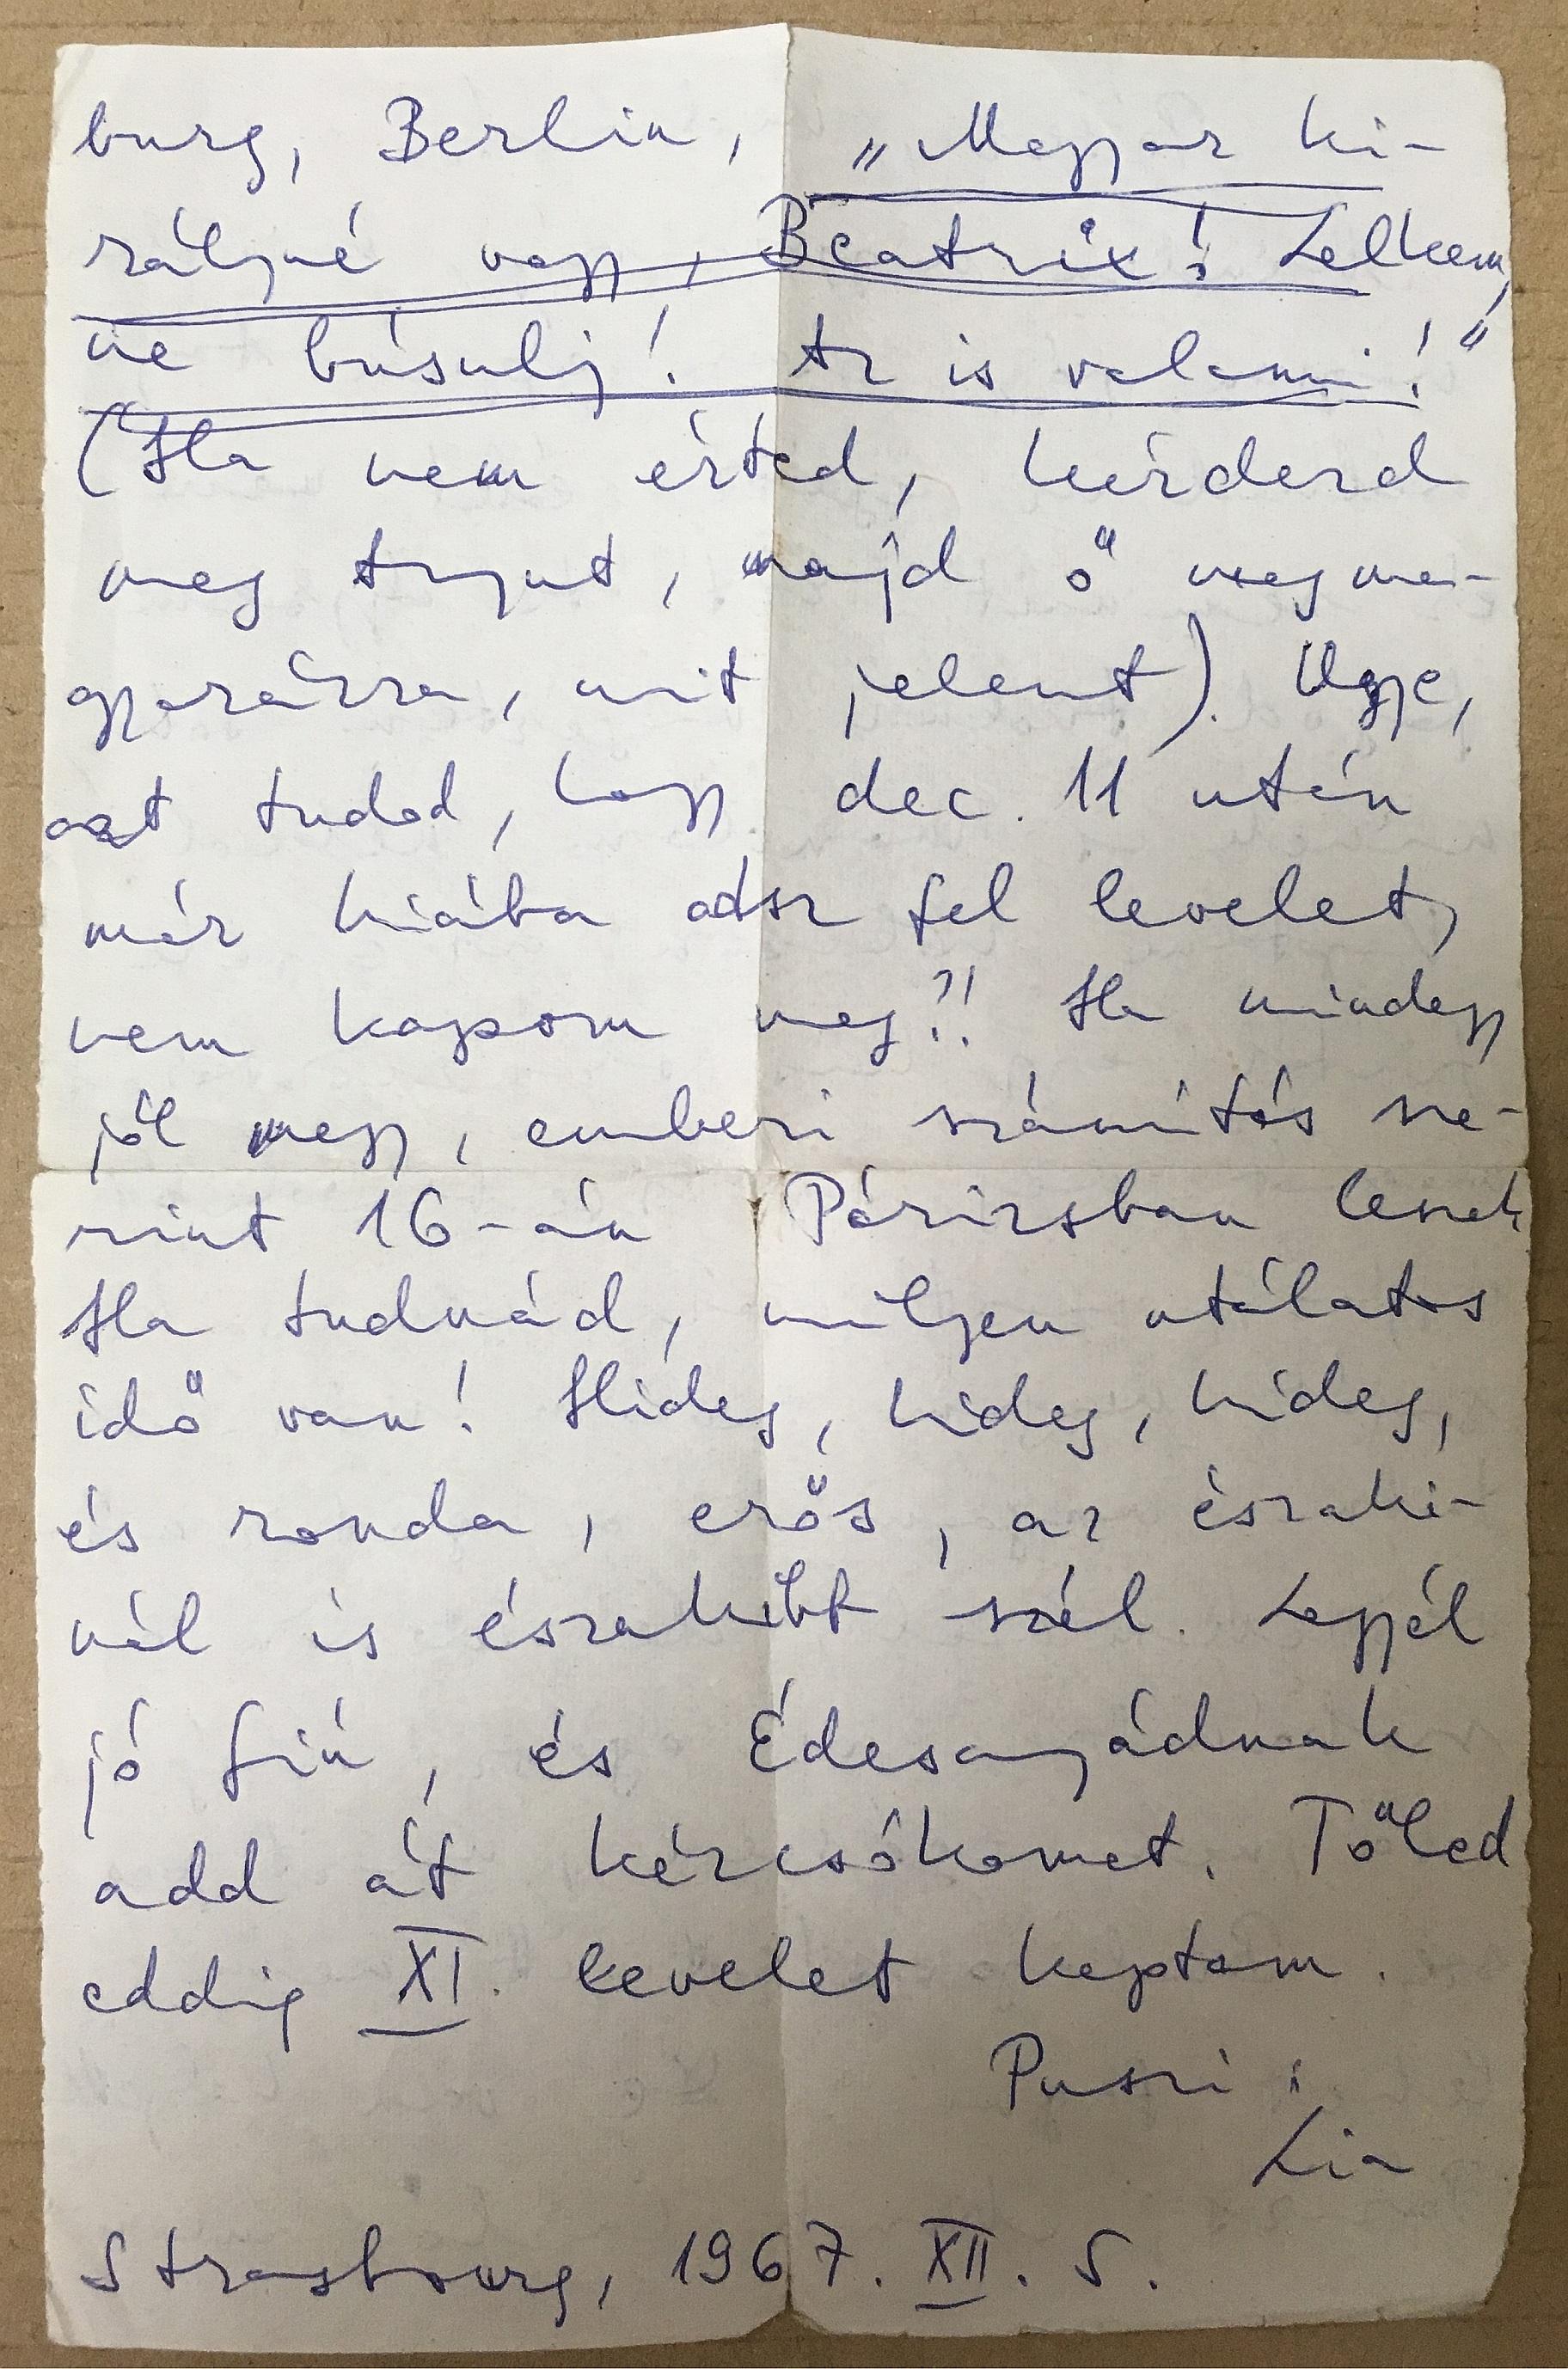 burg, Berlin, „Magyar ki-
rályné vagy, Beatrix! Lelkem,
ne búsulj! Az is valami!"
(Ha nem érted, kérdezd
meg , majd ő megma-
gyarázza, mit jelent). Ugye,
azt tudod, hogy dec. 11 után
már hiába adsz fel levelet,
nem kapom meg?! Ha mindegy
jól megy, emberi számítás sze-
rint 16-án Párizsban leszek
Ha tudnád, milyen utálatos
idő van! Hideg, hideg, hideg,
és ronda, erős, az északi-
nál is északibb szél. Legyél
jó fiú, és Édesanyádnak
add át kézcsókomat. Tőled
eddig XI. levelet kaptam.
Puszi:
Lia
Strasbourg, 1967. XII. 5.